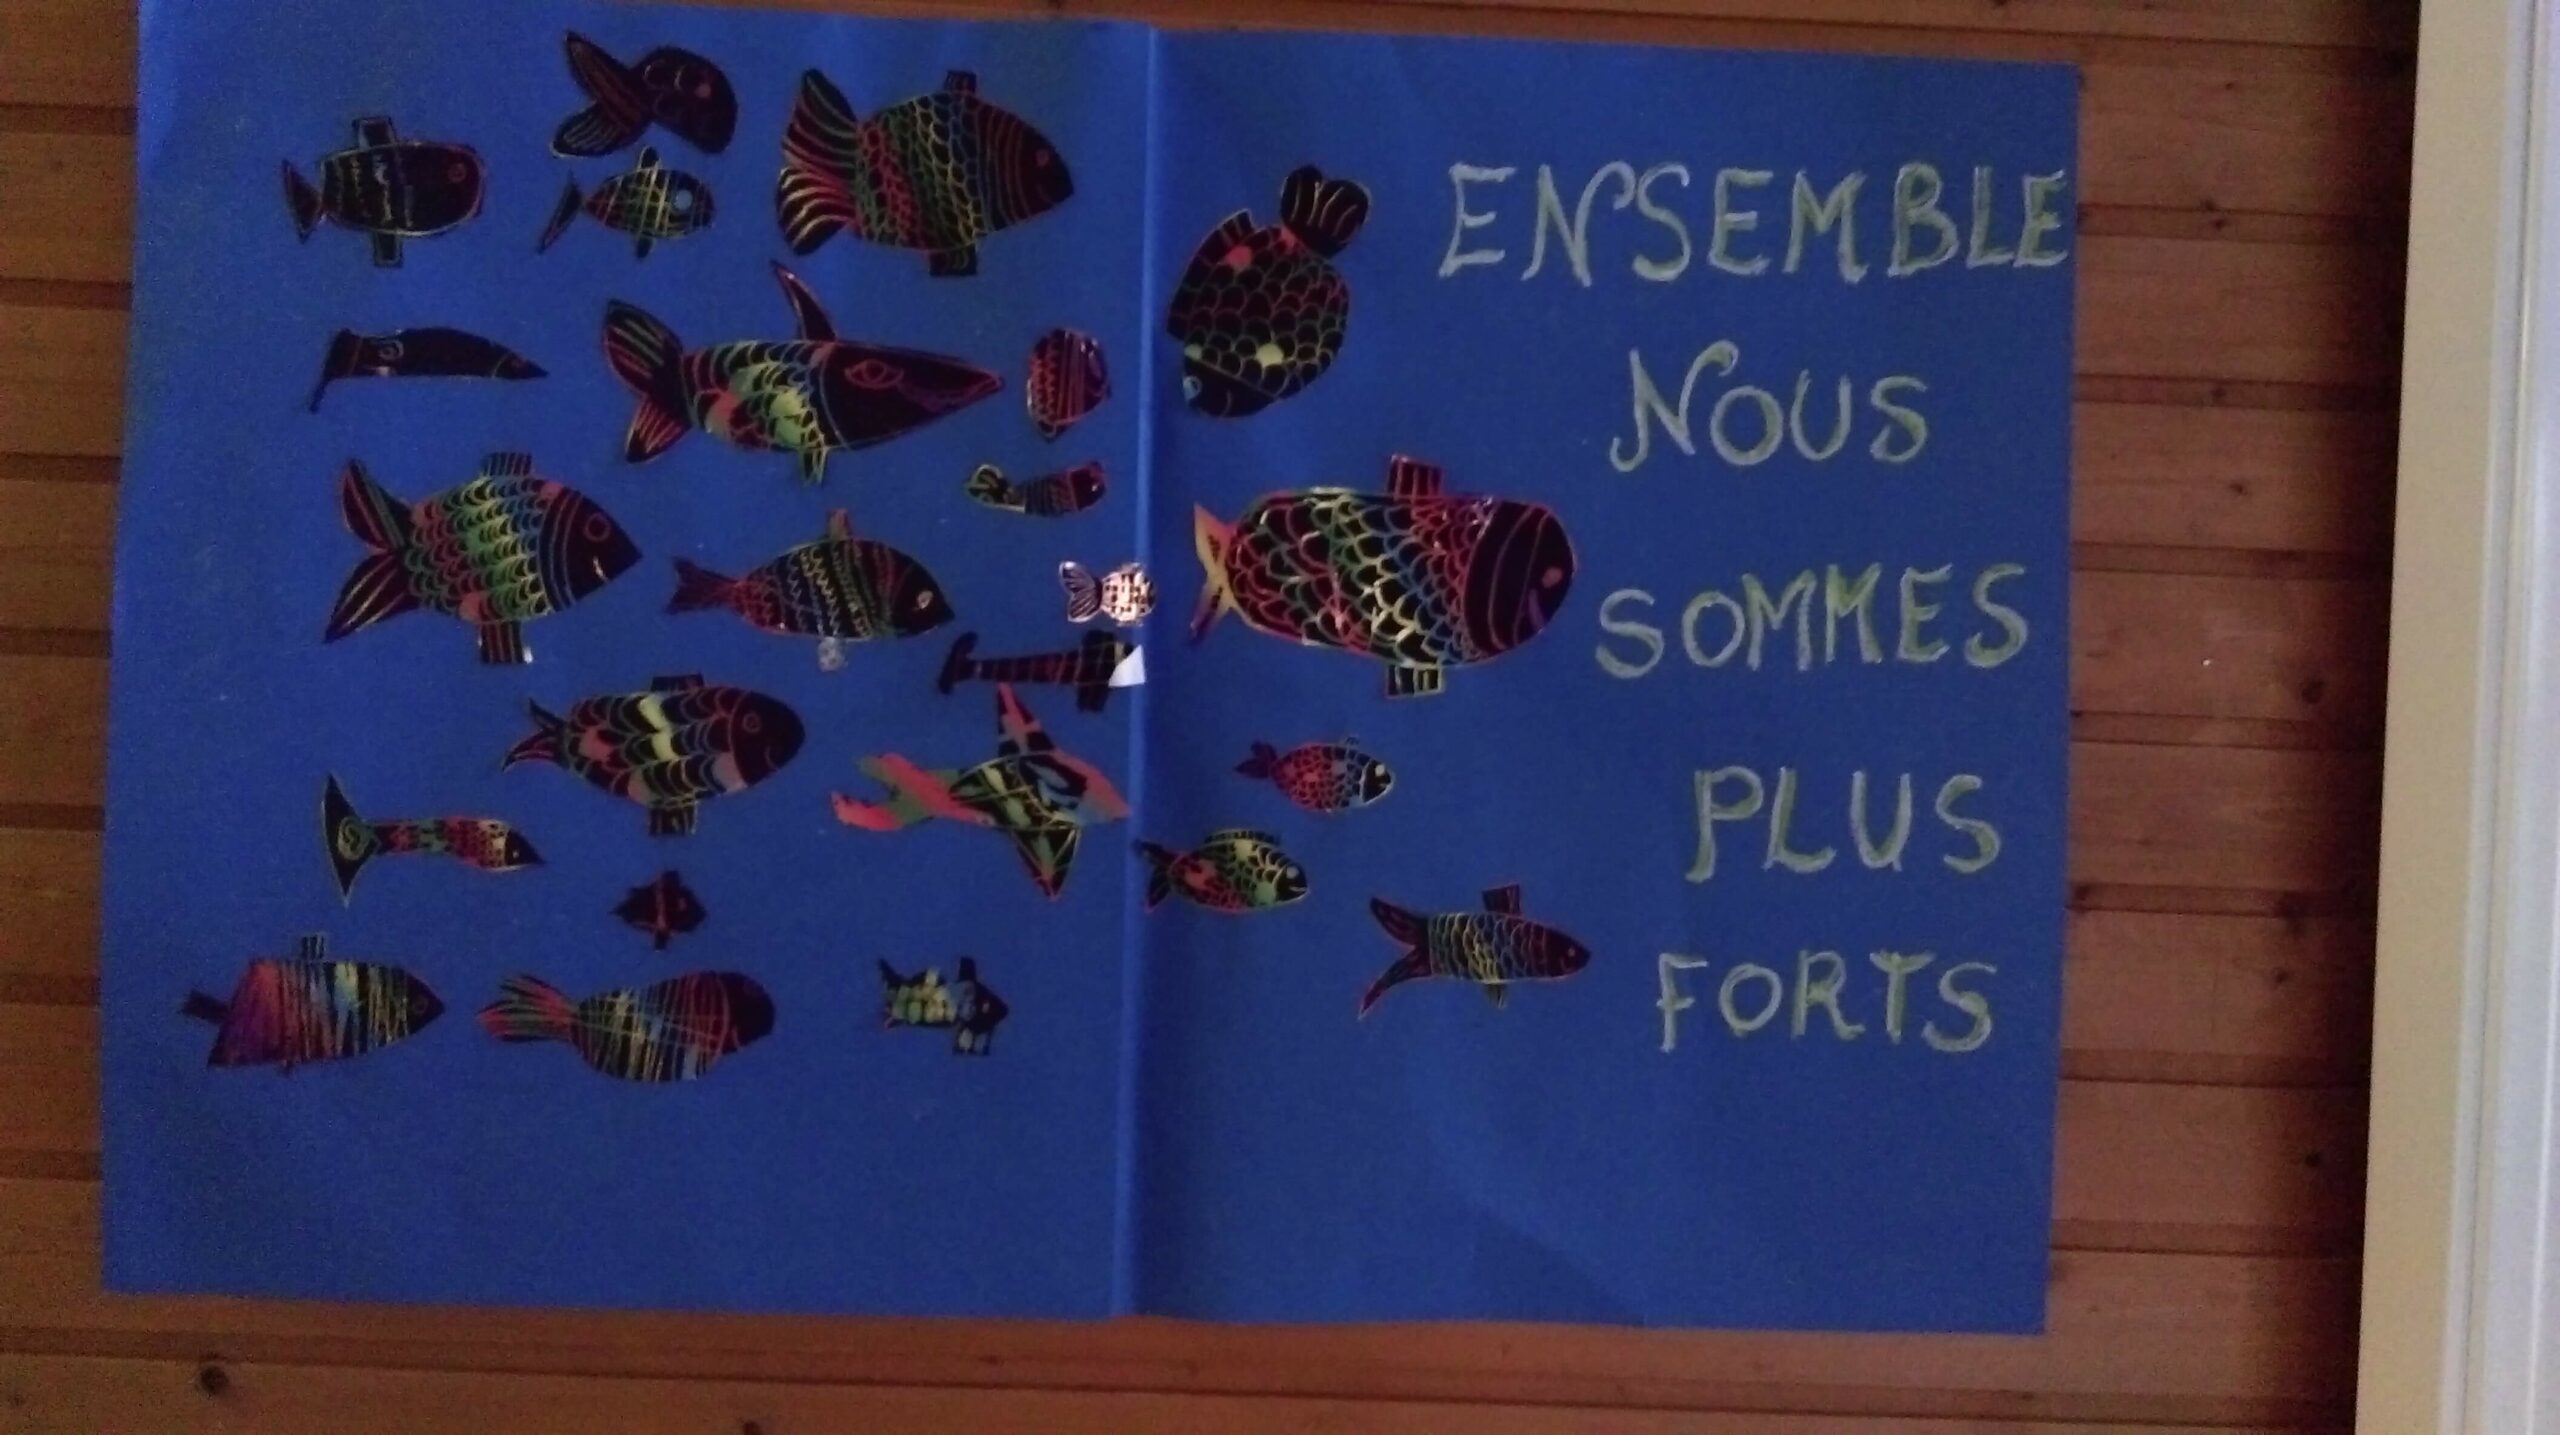 ENSEMBLE
NOUS
SOMMES
PLUS
FORTS